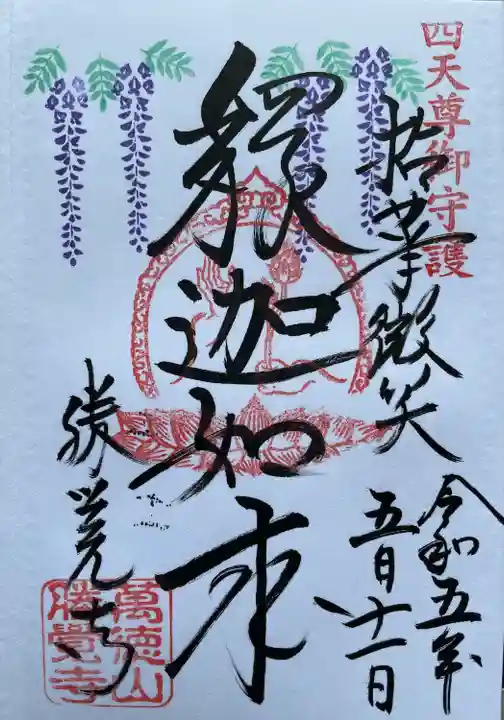 四天尊御守護
拈華微笑
令和五年
五月十一日
釋迦如来
勝覚寺
萬徳山
勝覺寺